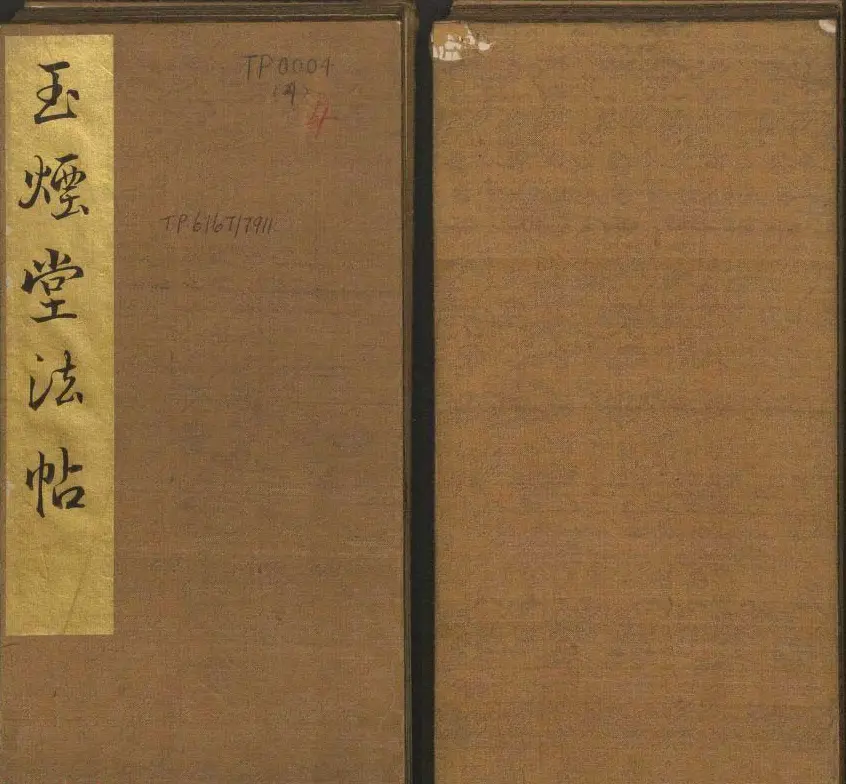 玉煙堂法帖
TP0004
(4)
TP.6167/7911